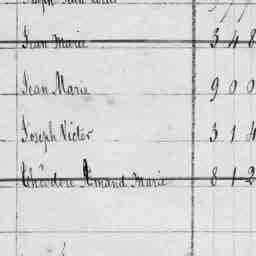 Jean Marie 3 4 8
Jean Marie 9 0 0
Joseph Victor 3 1 4
Théodore Armand Marie 8 1 2